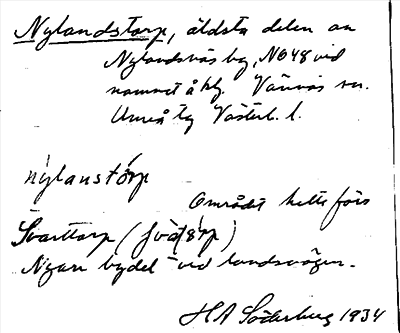 Nylandstorp, äldsta delen av
Nylandsnäs by, N648 vid
namnet å kg. Vännäs sn.
Umeå tg Västerb. l.
nýlanstó̀rp
Området hette förs
Svarttorp (
Nyare bydel vid landsvägen.
H A Söderberg 1934